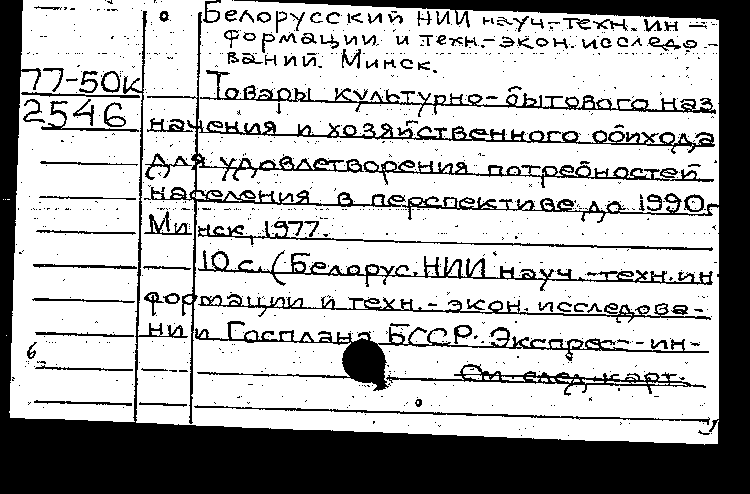 Белорусский НИИ науч.-техн. ин-
формации и техн.-экон. исследо-
ваний. Минск.
77-50к
2546
Товары культурно-бытового наз
начения и хозяйственного обихода
для удовлетворения потребностей
населения в перспективе до 1990г
Минск, 1977.
10 с. (Белорус. НИИ науч.-техн. ин
формации и техн.-экон. исследова-
нии Госплана БССР. Экспресс-ин-
См. след. карт.
6